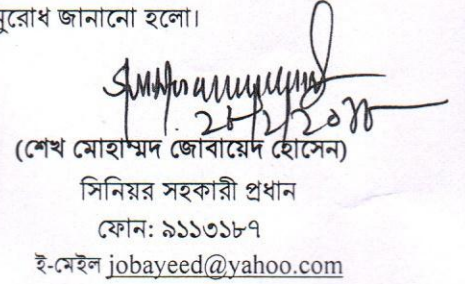 নুরোধ জানানো হলো।
(শেখ মোহাম্মদ জোবায়েদ হোসেন)
সিনিয়র সহকারী প্রধান
ফোন: ৯১১৩১৮৭
ই-মেইল jobayeed@yahoo.com